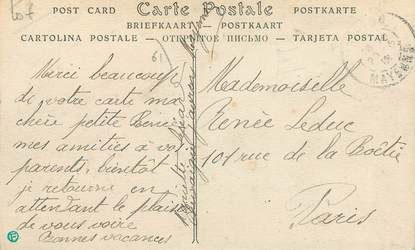 POST CARD
Carte Postale
POSTKARTE
BRIEFKAART
POSTKAART
CARTOLINA POSTALE
ОТКРЫТОЕ ПИСЬМО
TARJETA POSTAL
61
Merci beaucoup
de votre carte ma
chère petite Renée
mes amitiés à vos
parents, bientôt
je retourne en
attendant le plaisir
de vous voire
Bonnes vacances
Mademoiselle
Renée Leduc
101 rue de la Boëtie
Paris
MAYENNE